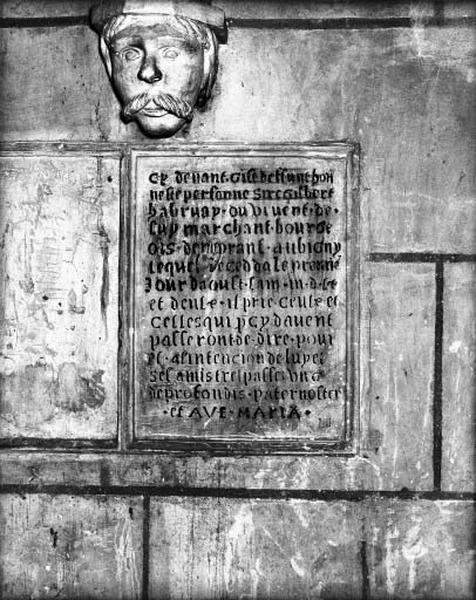 cy devant gist deffunt hon
neste personne sire gilbert
babruay · du vivent · de ·
luy marchant · bourge
ois · demorant · aubigny
lequel deceda le premie
Jour daoust · lam · m · d · le
et deulx · il prie ceulx et
celles qui p cy davent
passeront · de · dire · pour
et · alintencion de luy et
ses amis trespasses ung
de profondis · paternoster
· et AVE · MARIA ·